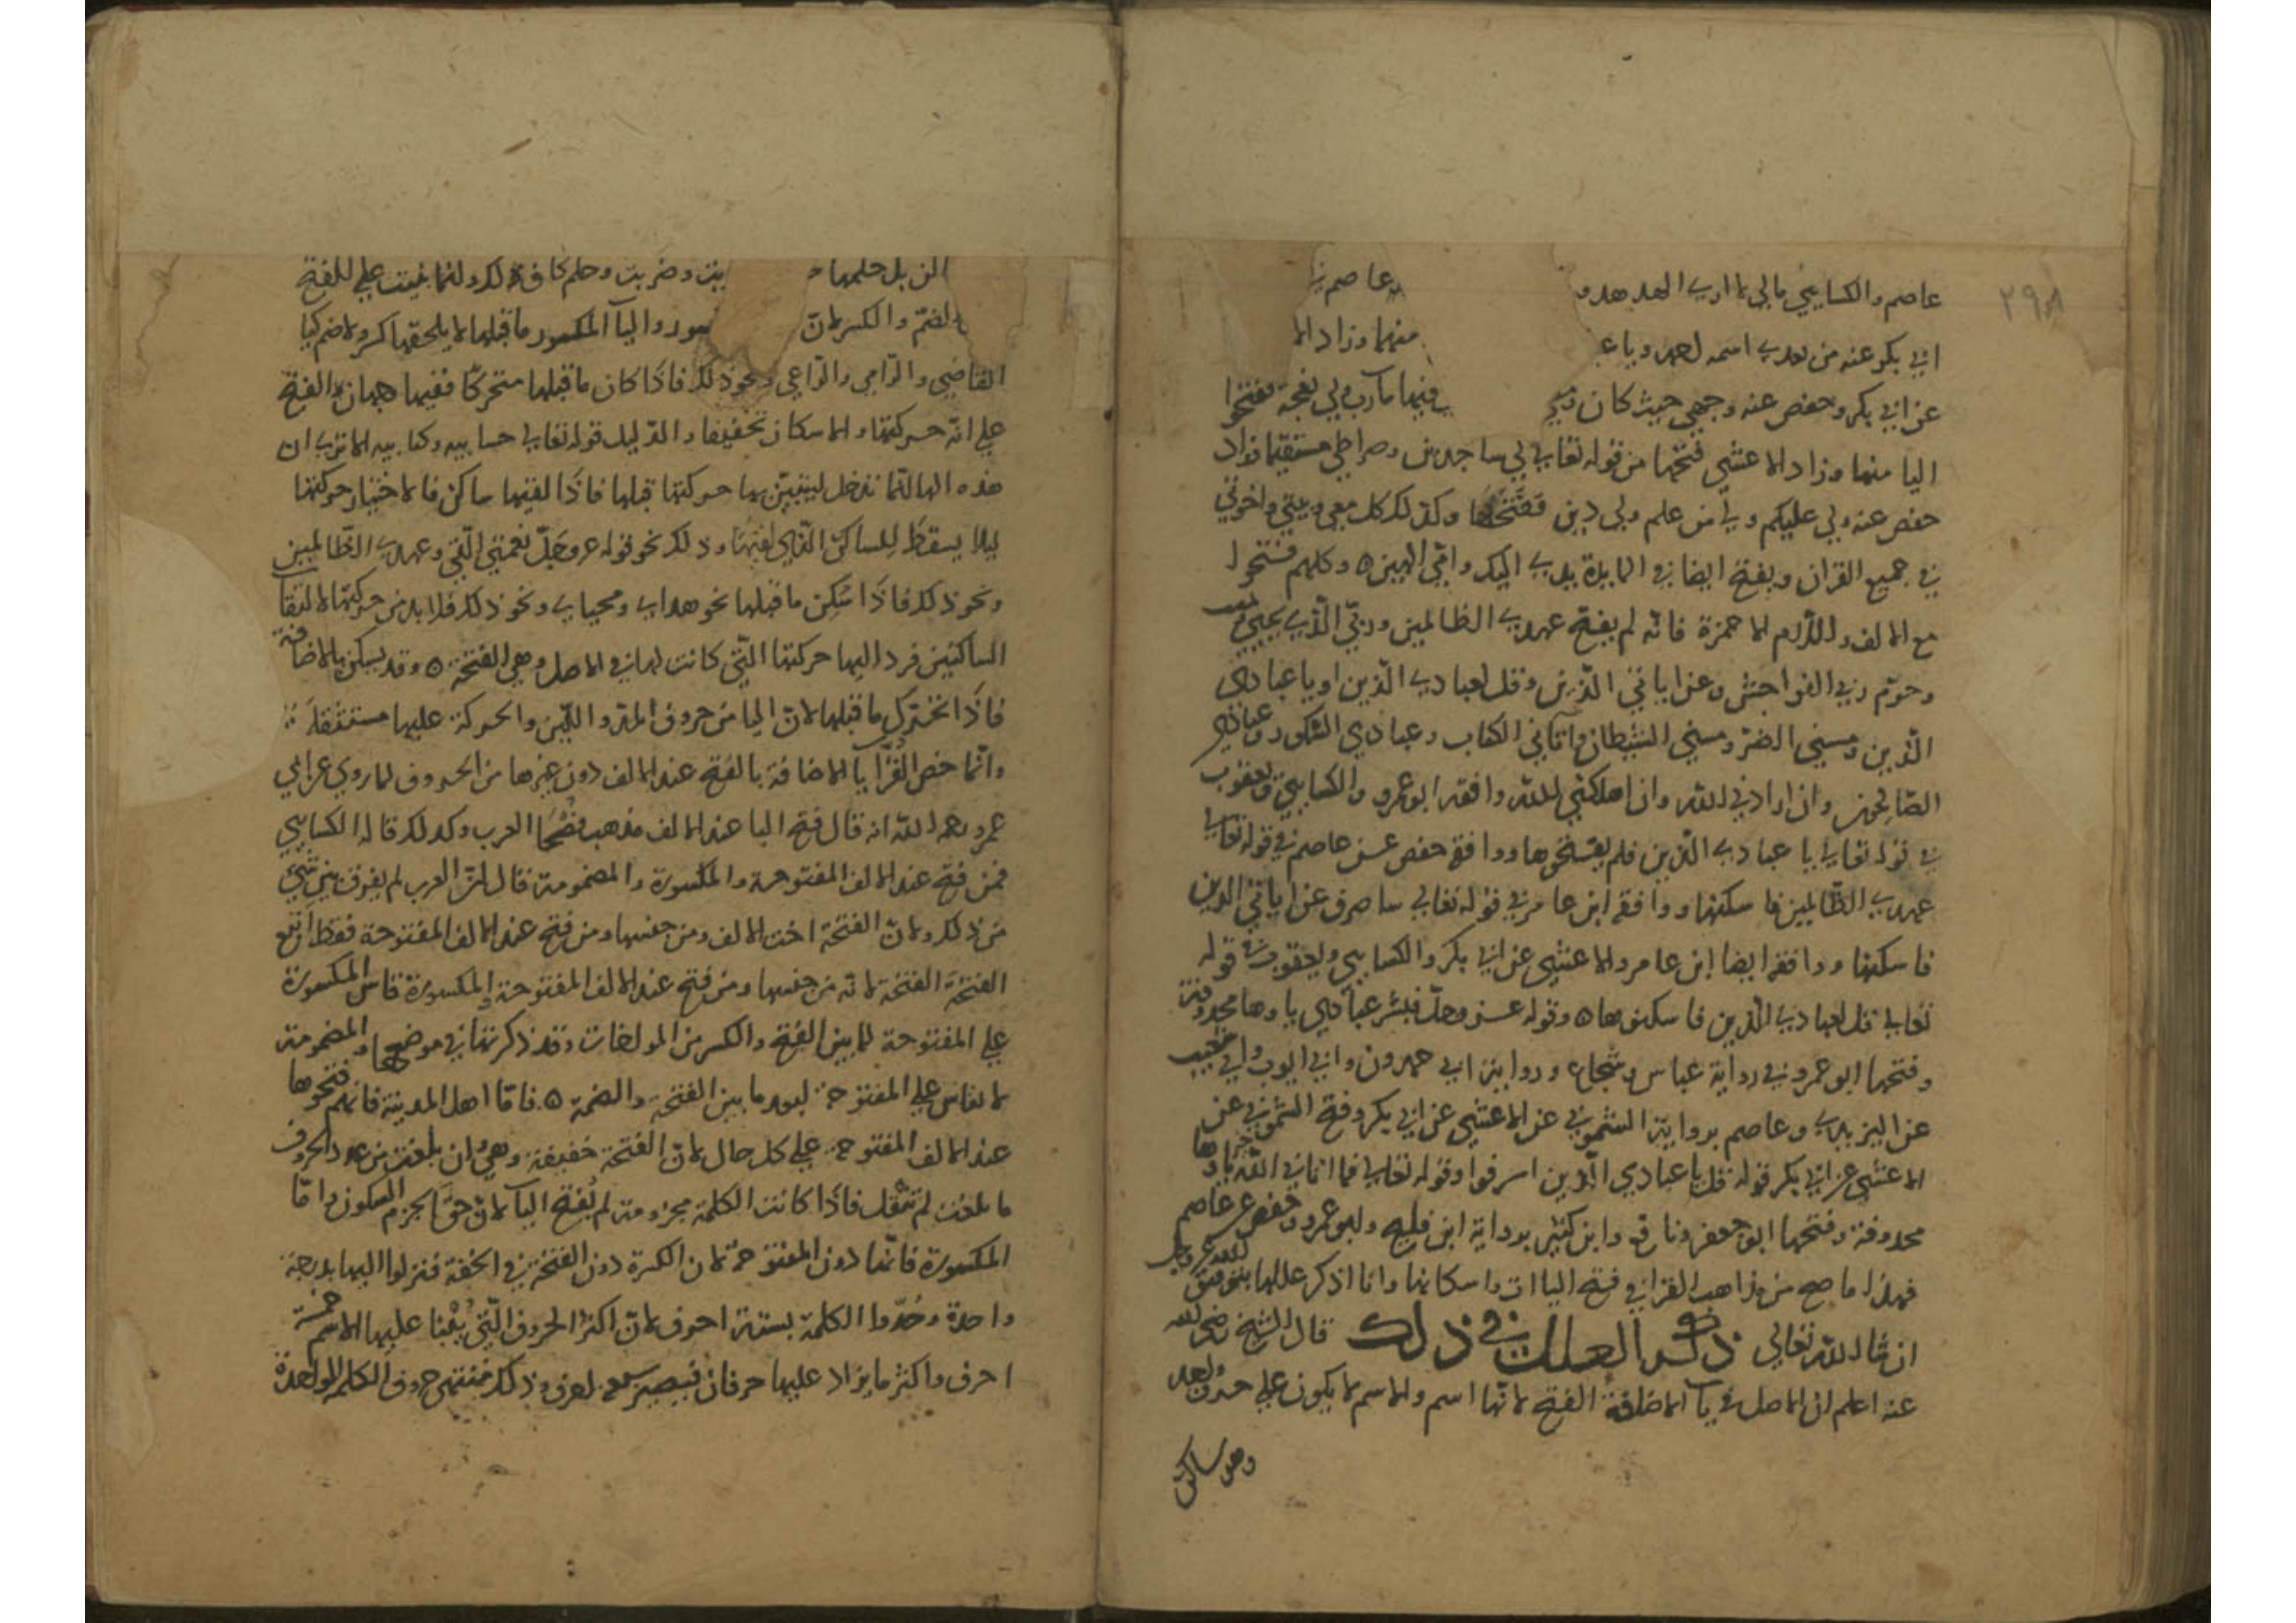 ٢٩٨
عاصم والكسايي مالي لا اري الهدهد و عاصم في
ابي بكر عنه من بعدي اسمه لعدد وباء منهما وزاد الا
عن ابي بكر وحفص عنه وجهي حيث كان فيها مآرب ولي نعجة ففتحوا
اليا منها وزاد الاعشي فتحها من قوله تعالي لي ساجدين وصراطي مستقيما وزاد
حفص عنه ولي عليكم ولي من علم ولي دين ففتحها وكذلك كل معي وبيتي واخوتي
في جميع القران وبفتح ايضا في المايدة يدي اليك وامي الهين ٥ وكلهم فتحوا
مع الالف واللام الا حمزة فانه لم يفتح عهدي الظالمين وربي الذي يحيي
وحرم ربي الفواحش وعن اياتي الذين وقل لعبادي الذين او يا عبادي
الذين ومسني الضر ومسني الشيطان واتاني الكتاب وعبادي الشكور وعبادي
الصالحون وان ارادني الله وان اهلكني الله وافقه ابو عمرو والكسايي ويعقوب
في قوله تعالي يا عبادي الذين فلم يفتحوها ووافقه حفص عن عاصم في قوله تعالي
عهدي الظالمين فاسكنها ووافقه ابن عامر في قوله تعالي ساصرف عن اياتي الذين
فاسكنها ووافقه ايضا ابن عامر والاعشي عن ابي بكر والكسايي ويعقوب في قوله
تعالي قل لعبادي الذين فاسكنوها ٥ وقوله عز وجل فبشر عبادي ياوها محذوفة
وفتحها ابو عمرو في رواية عباس وشجاع ورواية ابي حمدون وابي ايوب وابي شعيب
عن اليزيدي وعاصم برواية الشموني عن الاعشي عن ابي بكر وفتح الشموني عن
الاعشي عن ابي بكر قوله قل يا عبادي الذين اسرفوا وقوله تعالي فما اتاني الله ياوها
محذوفة وفتحها ابو جعفر ونافع وابن كثير برواية ابن فليح وابو عمرو وحفص عن عاصم
فهذا ما صح من مذاهب القرا في فتح الياات واسكانها وانا اذكر عللها بتوفيق الله عز وجل
ان شا الله تعالي ذكر العلل في ذلك قال الشيخ رضي الله
عنه اعلم ان الاصل في يآ الاضافة الفتح لانها اسم والاسم لا يكون علي حرف واحد
وهو ساكن
بيت وضربت وحلم كاف ذلك وانما بنيت علي الفتح
الضم والكسر لان والياآ المكسور ما قبلها لا يلحقها كسر ولا ضم كيا
القاضي والرامي والراعي ونحو ذلك فاذا كان ما قبلها متحركا ففيها وجهان الفتح
علي انه حركتها والاسكان تخفيفا والدليل قوله تعالي حسابيه وكتابيه الا تري ان
هذه الها انما تدخل ليتبين بها حركتها قبلها فاذا لقيها ساكن فالاختيار حركتها
ليلا يسقط للساكن الذي لقيها وذلك نحو قوله عز وجل نعمتي التي وعهدي الظالمين
ونحو ذلك فاذا سكن ما قبلها نحو هداي ومحياي ونحو ذلك فلا بد من حركتها لالتقآ
الساكنين فرد اليها حركتها التي كانت لها في الاصل وهي الفتحة ٥ وقد يسكن يا الاضافة
فاذا تحرك ما قبلها لان اليا من حروف المد واللين والحركة عليها مستثقلة
وانما خص القرا يآ الاضافة بالفتح عند الالف دون غيرها من الحروف لما روي عن ابي
عمرو رحمه الله انه قال فتح اليا عند الالف مذهب فصحا العرب وكذلك قاله الكسايي
فمن فتح عند الالف المفتوحة والمكسورة والمضمومة قال لان العرب لم يفرق بين شي
من ذلك ولان الفتحة اخت الالف ومن جنسها ومن فتح عند الالف المفتوحة فقط اتبع
الفتحة الفتحة لانه من جنسها ومن فتح عند الالف المفتوحة والمكسورة قاس المكسورة
علي المفتوحة لما بين الفتح والكسر من المواخات وقد ذكرتها في موضعها والمضمومة
لا تقاس علي المفتوحة لبعد ما بين الفتحة والضمة ٥ فاما اهل المدينة فانهم فتحوها
عند الالف المفتوحة علي كل حال لان الفتحة خفيفة وهي وان بلغت من عدد الحروف
ما بلغت لم تثقل فاذا كانت الكلمة مجزومة لم يفتح اليآ لان حق الجزم السكون واما
المكسورة فانها دون المفتوحة لان الكسرة دون الفتحة في الخفة فنزلوا اليها بدرجة
واحدة وحدوا الكلمة بستة احرف لان اكثر الحروف التي يبنا عليها الاسم خمسة
احرف واكثر ما يزاد عليها حرفان فيصير سبعة احرف وذلك منتهي حروف الكلمة الواحدة